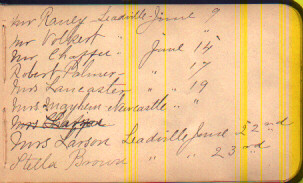 Mr Raney - Leadville - June 9
Mr Volkert " "
Mr Chaffee - June 14
Robert Palmer - " 17
Mrs Lancaster " 19
Mrs Mayhem Newcastle " "
Mrs
Mrs Larson Leadville June 22nd
Stella Brown " " 23rd